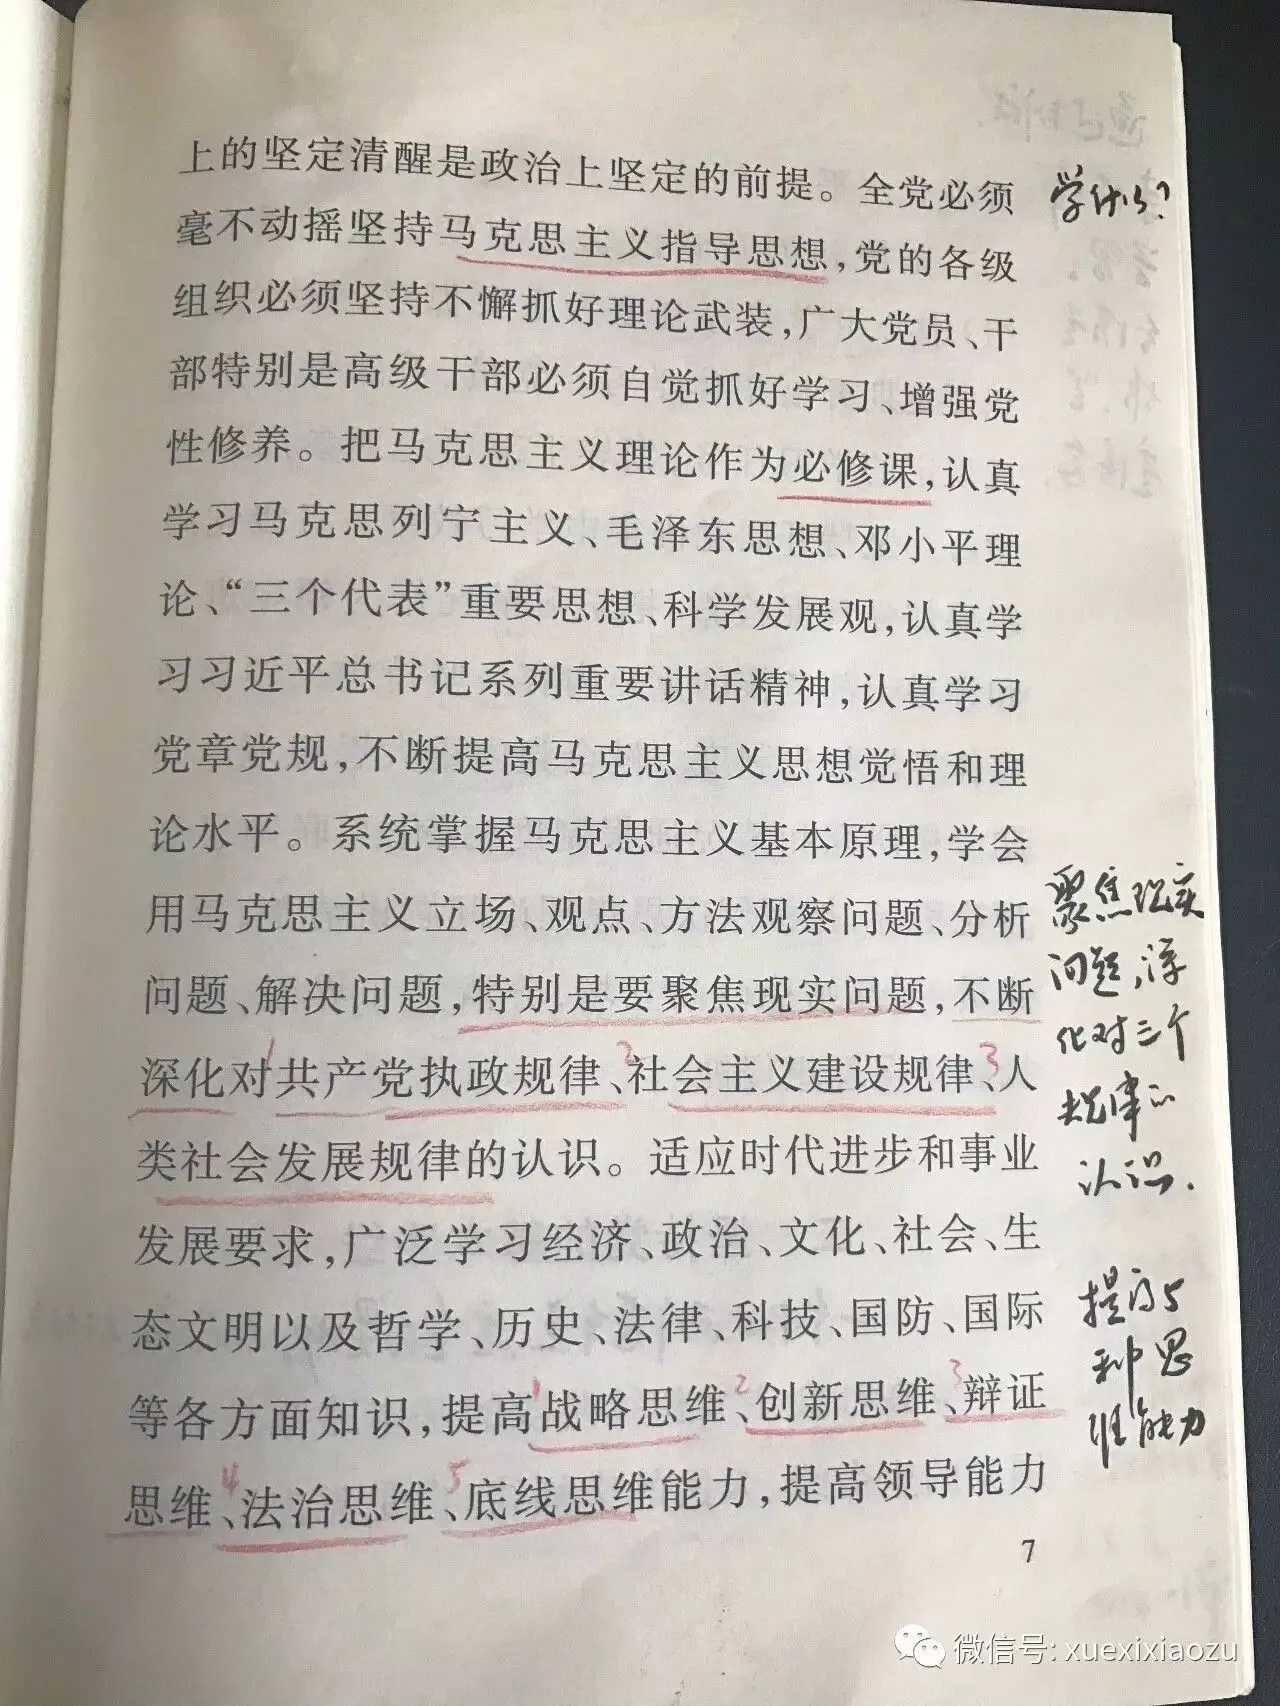 上的坚定清醒是政治上坚定的前提。全党必须
毫不动摇坚持马克思主义指导思想，党的各级
组织必须坚持不懈抓好理论武装，广大党员、干
部特别是高级干部必须自觉抓好学习、增强党
性修养。把马克思主义理论作为必修课，认真
学习马克思列宁主义、毛泽东思想、邓小平理
论、“三个代表”重要思想、科学发展观，认真学
习习近平总书记系列重要讲话精神，认真学习
党章党规，不断提高马克思主义思想觉悟和理
论水平。系统掌握马克思主义基本原理，学会
用马克思主义立场、观点、方法观察问题、分析
问题、解决问题，特别是要聚焦现实问题，不断
深化对共产党执政规律、社会主义建设规律、人
类社会发展规律的认识。适应时代进步和事业
发展要求，广泛学习经济、政治、文化、社会、生
态文明以及哲学、历史、法律、科技、国防、国际
等各方面知识，提高战略思维、创新思维、辩证
思维、法治思维、底线思维能力，提高领导能力
7
学什么?
聚焦现实
问题，深
化对三个
规律的
认识.
提高5
种思
维能力
1 2 3
1 2 3
4 5
微信号: xuexixiaozu